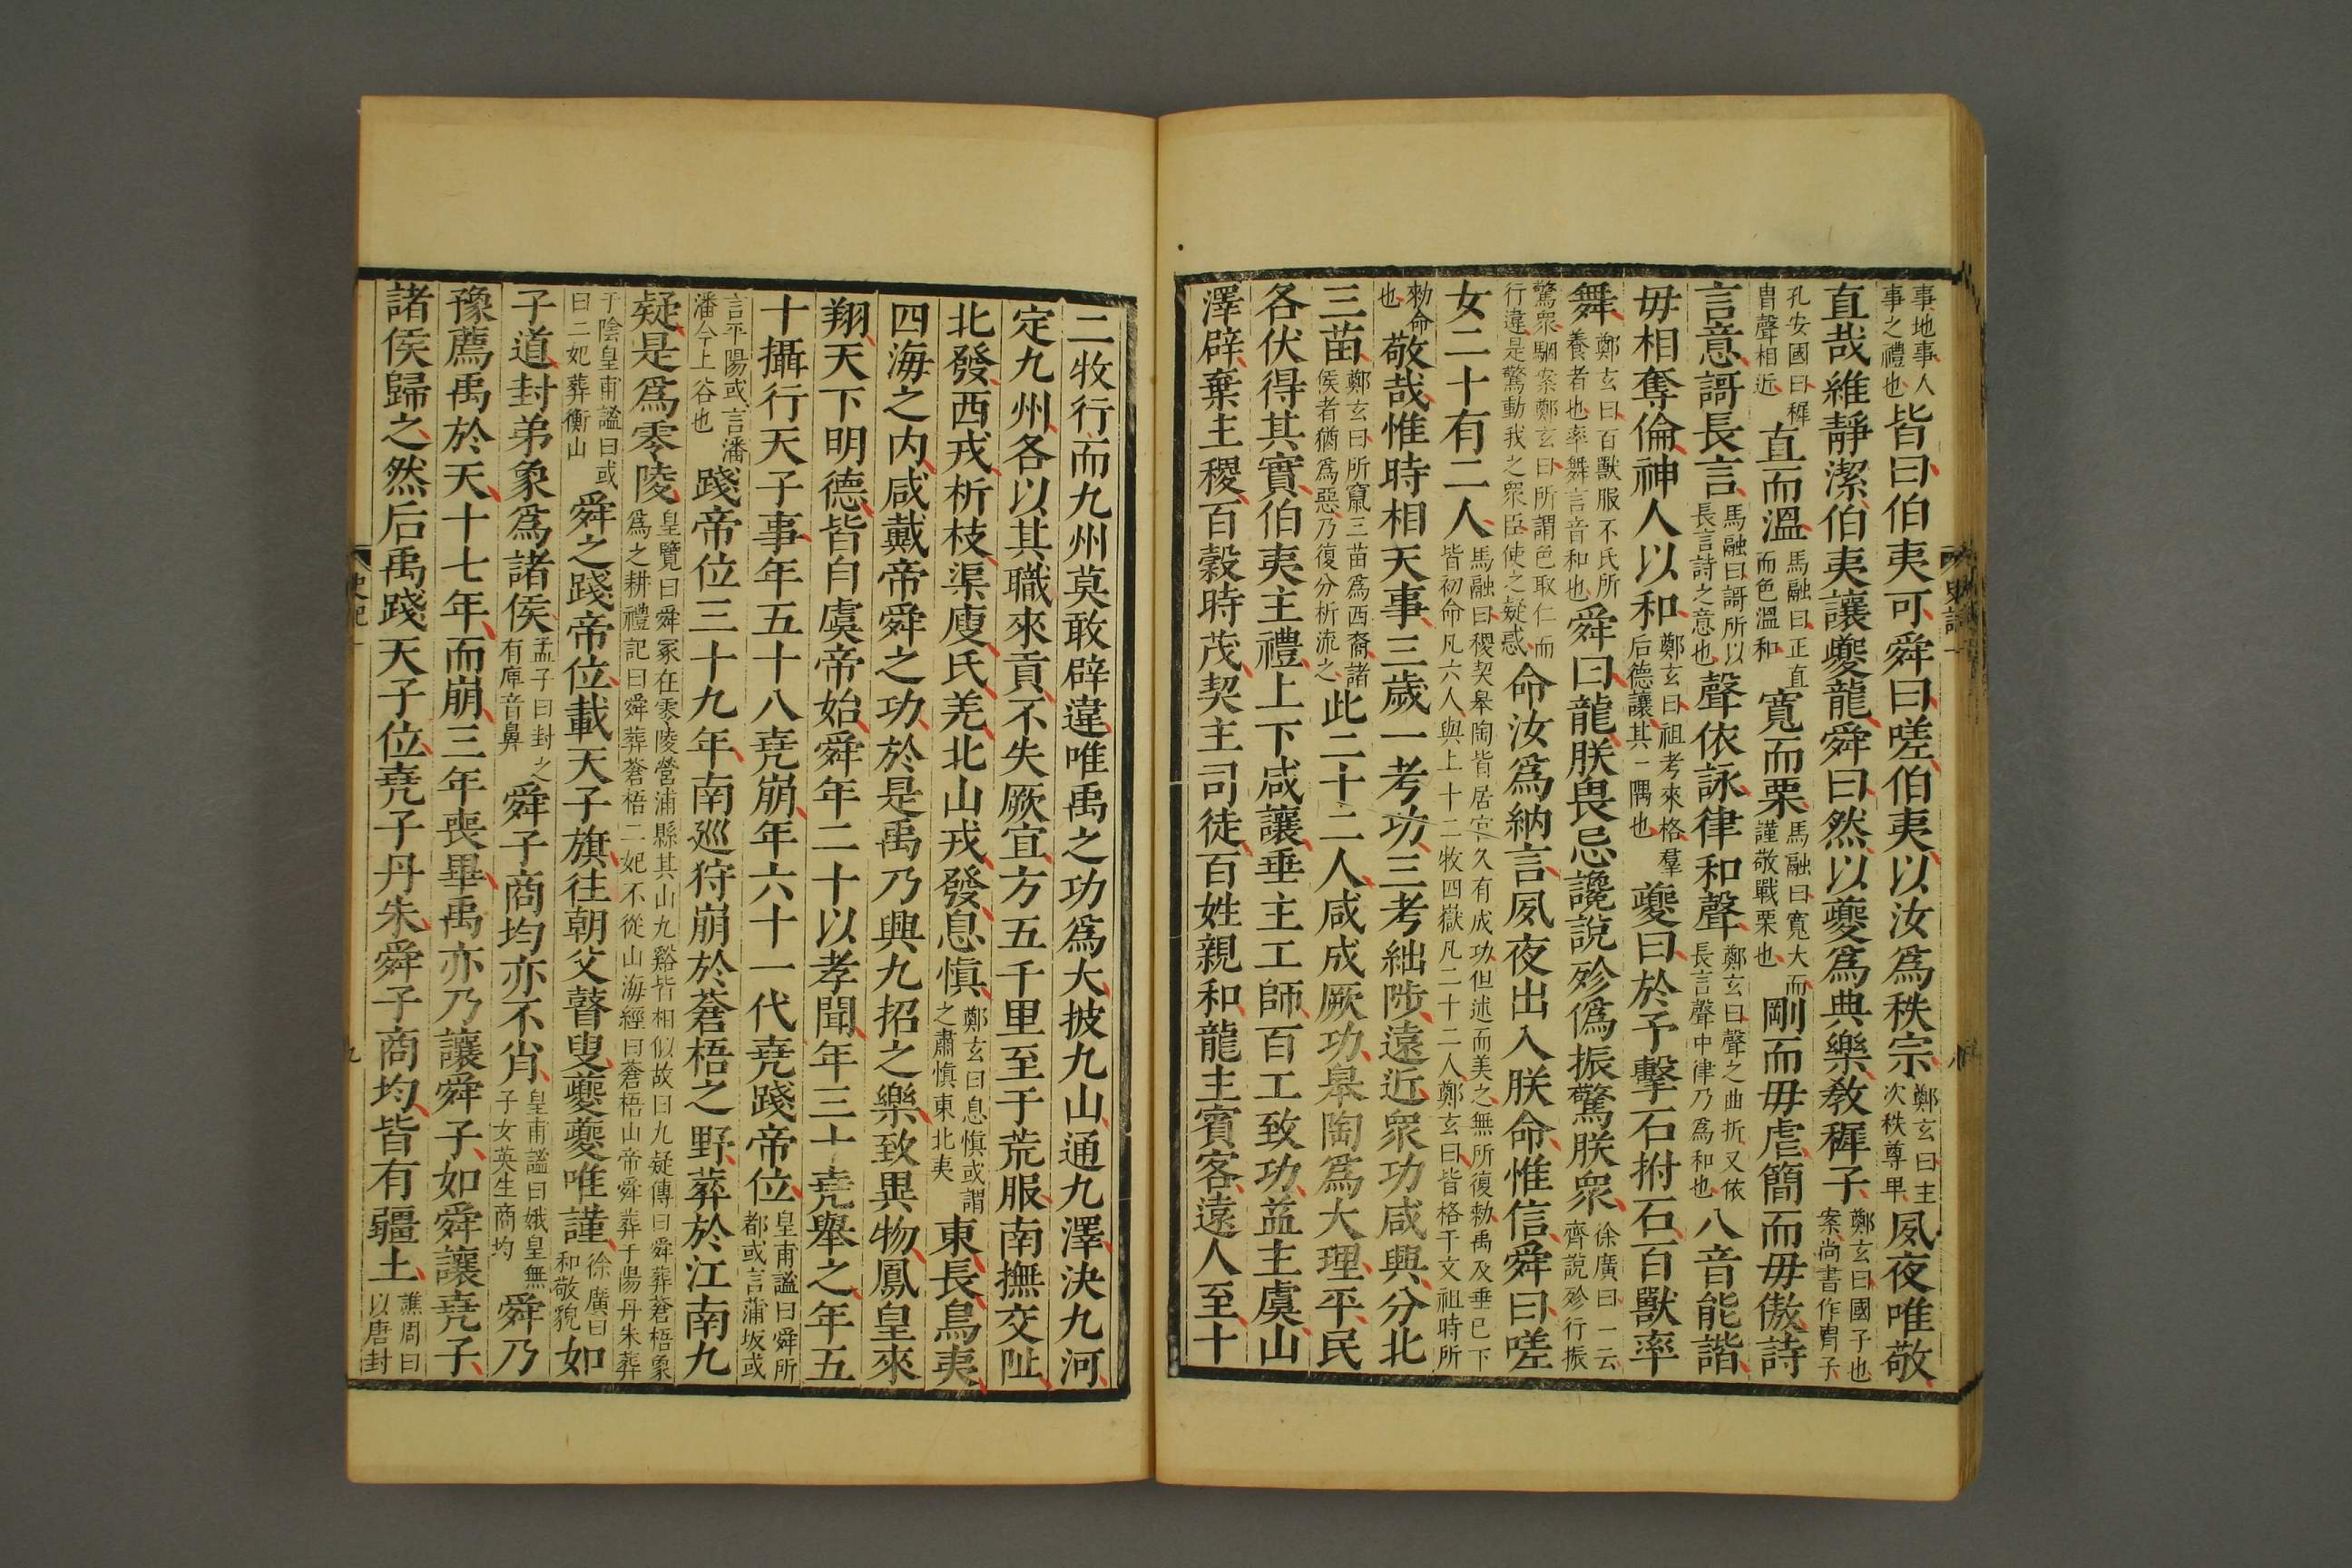 事地事人事之禮也皆曰伯夷可舜曰嗟伯夷以汝爲秩宗鄭玄曰主次秩尊卑夙夜唯敬
直哉維靜潔伯夷讓夔龍舜曰然以夔爲典樂教穉子鄭玄曰國子也案尚書作胄子
孔安國曰穉胄聲相近直而溫馬融曰正直而色溫和寬而栗馬融曰寬大而謹敬戰栗也剛而毋虐簡而毋傲詩
言意謌長言馬融曰謌所以長言詩之意也聲依詠律和聲鄭玄曰聲之曲折又依長言聲中律乃爲和也八音能諧
毋相奪倫神人以和鄭玄曰祖考來格羣后德讓其一隅也夔曰於予擊石拊石百獸率
舞鄭玄曰百獸服不氏所養者也率舞言音和也舜曰龍朕畏忌讒說殄僞振驚朕衆徐廣曰一云齊說殄行振
驚衆駰案鄭玄曰所謂色取仁而行違是驚動我之衆臣使之疑惑命汝爲納言夙夜出入朕命惟信舜曰嗟
女二十有二人馬融曰稷契皋陶皆居官久有成功但述而美之無所復勑禹及垂已下皆初命凡六人與上十二牧四嶽凡二十二人鄭玄曰皆格于文祖時所
勑命也敬哉惟時相天事三歲一考功三考絀陟遠近衆功咸興分北
三苗鄭玄曰所竄三苗爲西裔諸侯者猶爲惡乃復分析流之此二十二人咸成厥功皋陶爲大理平民
各伏得其實伯夷主禮上下咸讓垂主工師百工致功益主虞山
澤辟棄主稷百穀時茂契主司徒百姓親和龍主賓客遠人至十
二牧行而九州莫敢辟違唯禹之功爲大披九山通九澤決九河
定九州各以其職來貢不失厥宜方五千里至于荒服南撫交阯
北發西戎析枝渠廋氐羌北山戎發息愼鄭玄曰息愼或謂之肅愼東北夷東長鳥夷
四海之內咸戴帝舜之功於是禹乃興九招之樂致異物鳳皇來
翔天下明德皆自虞帝始舜年二十以孝聞年三十堯舉之年五
十攝行天子事年五十八堯崩年六十一代堯踐帝位皇甫謐曰舜所都或言蒲坂或
言平陽或言潘潘今上谷也踐帝位三十九年南巡狩崩於蒼梧之野葬於江南九
疑是爲零陵皇覽曰舜冢在零陵營浦縣其山九谿皆相似故曰九疑傳曰舜葬蒼梧象爲之耕禮記曰舜葬蒼梧二妃不從山海經曰蒼梧山帝舜葬于陽丹朱葬
于陰皇甫謐曰或曰二妃葬衡山舜之踐帝位載天子旗往朝父瞽叟夔夔唯謹徐廣曰和敬貌如
子道封弟象爲諸侯孟子曰封之有庳音鼻舜子商均亦不肖皇甫謐曰娥皇無子女英生商均舜乃
豫薦禹於天十七年而崩三年喪畢禹亦乃讓舜子如舜讓堯子
諸侯歸之然后禹踐天子位堯子丹朱舜子商均皆有疆土譙周曰以唐封
史記一
九